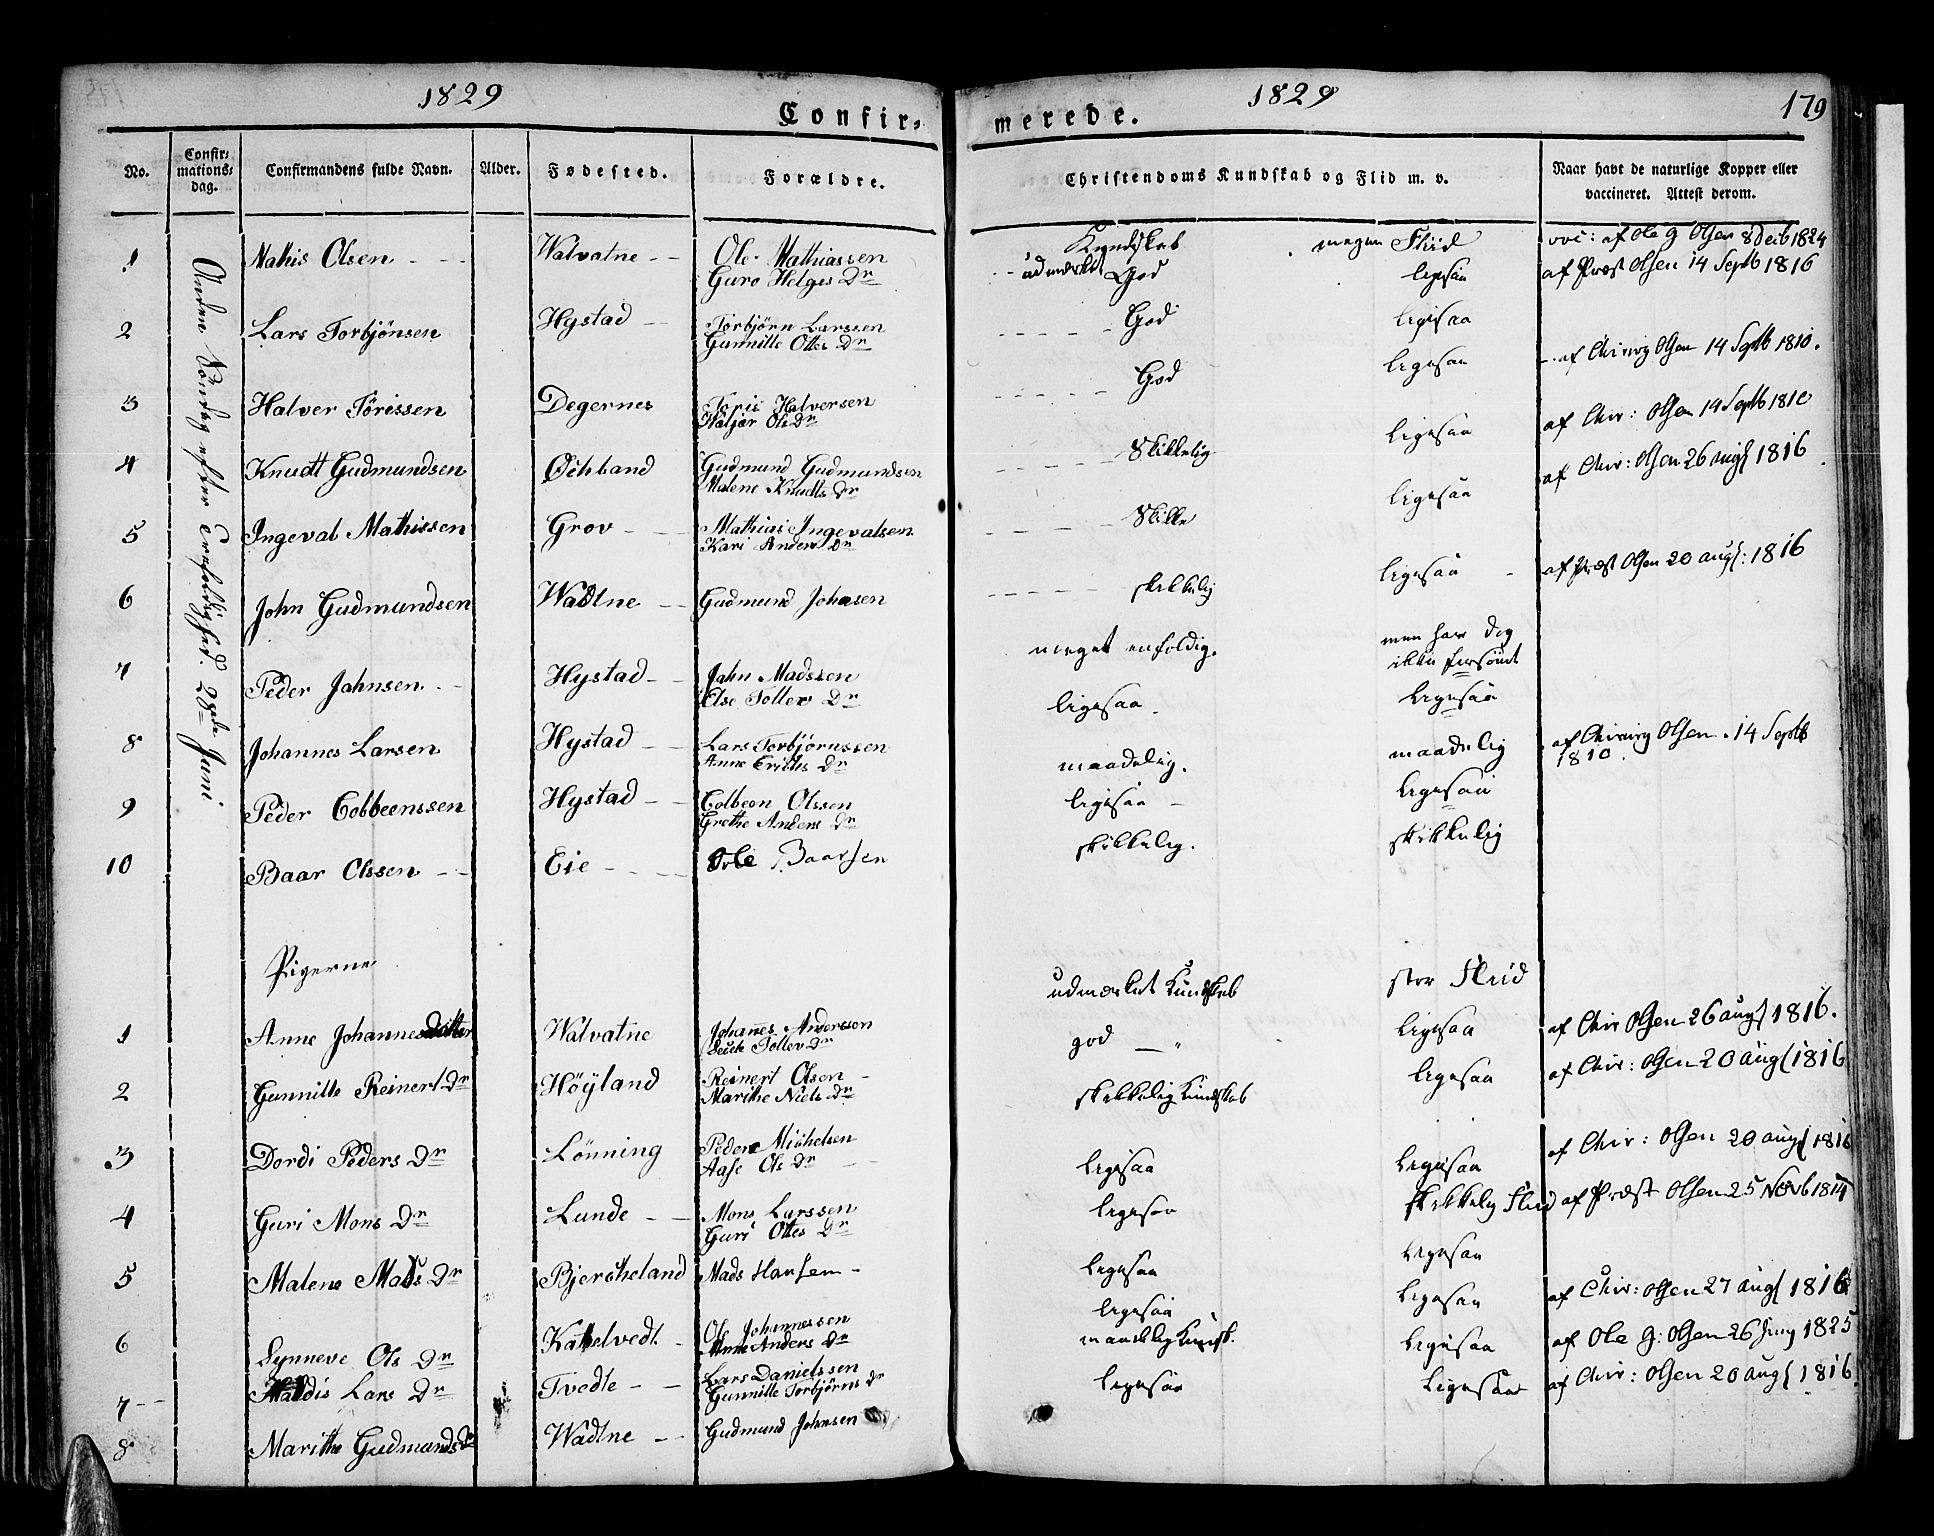 1829
Confir-
No.
Confir-
mations-
dag.
Confirmandens fulde Navn.
Alder.
Fødested.
Forældre.
Anden Söndag efter Trefoldighed. 28de Juni
1 Mathis Olsen Walvatne Ole Mathiassen
Guro Helges Dr
2 Lars Torbjönsen Hystad Torbjörn Larssen
Gunnille Ottes Dr
3 Halver Törissen Degernes Töris Halversen
Ols Dr
4 Knudt Gudmundsen Gudmund Gudmundsen
Malene Knudts Dr
5 Ingeval Mathissen Grov Mathias Ingevalsen
Kari Anders Dr
6 John Gudmundsen Wadtne Gudmund Johnsen
7 Peder Jahnsen Hystad Jahn Madssen
Else Tollev Dr
8 Johannes Larsen Hystad Lars Torbjörnssen
Anne Erichs Dr
9 Peder Colbeenssen Hystad Colbeen Olssen
Grethe Anders Dr
10 Baar Olssen Eie Ole Baarsen
Pigerne
1 Anne Johannesdatter Walvatne Johannes Anderssen
Tollev Dr
2 Gunnille Reinert Dr Höyland Reinert Olsen
Marithe Niels Dr
3 Dordi Peders Dr Lönning Peder Michelsen
Aase Ols Dr
4 Guri Mons Dr Lunde Mons Larssen
Guri Ottes Dr
5 Malene Mads Dr Bjercheland Mads Hansen
6 Synneve Ols Dr Katelvedt Ole Johannessen
Anne Anders Dr
7 Haldis Lars Dr Tvedte Lars Danielssen
Gunnille Torbjörns Dr
8 Marithe Gudmunds Dr Wadtne Gudmund Johnsen
1829
179
merede.
Christendoms Kundskab og Flid m. v.
Naar havt de naturlige Kopper eller
vaccineret. Attest derom.
Kundskab megen Fliid vac: af Ole G Olsen 8 Decb 1824
udmærket God ligesaa af Præst Olsen 14 Septb 1816
God ligesaa
God ligesaa af Chirurg Olsen 14 Septb 1810.
Skikkelig ligesaa af Chir: Olsen 14 Septb 1810
Skikke ligesaa af Chir: Olsen 26 augs 1816
skikkelig ligesaa af Præst Olsen 20 augs: 1816
meget enfoldig. men har dog
ikke forsömt
ligesaa ligesaa
maadelig. maadelig af Chirurg Olsen 14 Septb
1810
ligesaa ligesaa
skikkelig. skikkelig
udmærket Kundskab stor Fliid
god ligesaa af Chir Olsen 26 augs 1816.
skikkelig Kundskab ligesaa af Chir: Olsen 20 augs 1816
ligesaa ligesaa af Chir: Olsen 20 augs 1816
ligesaa skikkelig Fliid af Præst Olsen 25 Novb 1814
ligesaa ligesaa
ligesaa ligesaa af Chir: Olsen 27 augs 1816
maadelig Kundsk. ligesaa af Ole G: Olsen 26 Juny 1825
ligesaa ligesaa af Chir: Olsen 20 augs 1816.